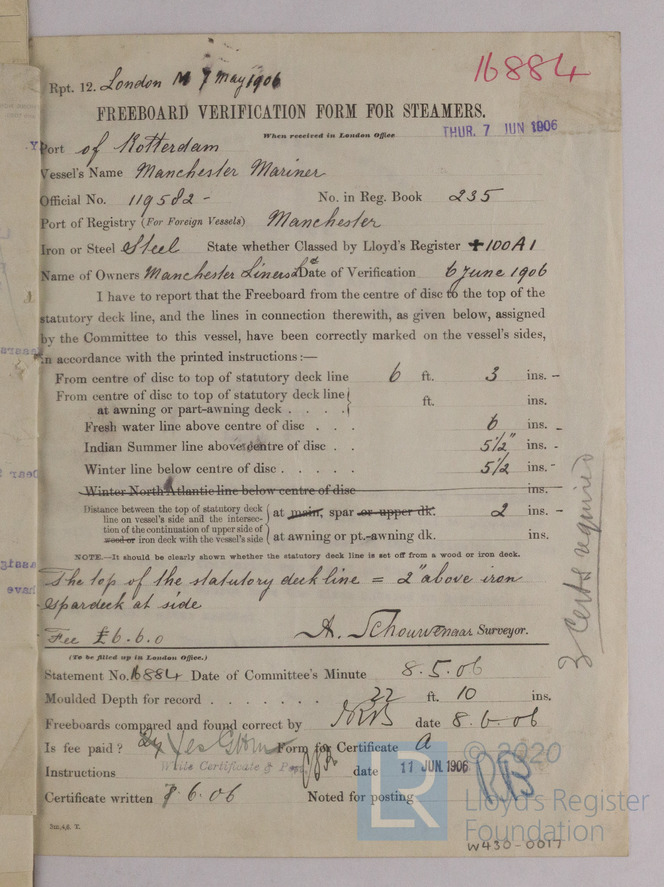 16884
Rpt. 12. London 7 May 1906
FREEBOARD VERIFICATION FORM FOR STEAMERS.
When received in London Office THUR. 7 JUN 1906
Port of Rotterdam
Vessel's Name Manchester Mariner
Official No. 119582 - No. in Reg. Book 235
Port of Registry (For Foreign Vessels) Manchester
Iron or Steel Steel State whether Classed by Lloyd's Register +100A1
Name of Owners Manchester Liners Ld Date of Verification 6 June 1906
I have to report that the Freeboard from the centre of disc to the top of the
statutory deck line, and the lines in connection therewith, as given below, assigned
by the Committee to this vessel, have been correctly marked on the vessel's sides,
in accordance with the printed instructions :—
From centre of disc to top of statutory deck line 6 ft. 3 ins. -
From centre of disc to top of statutory deck line
at awning or part-awning deck . . . . ft. ins.
Fresh water line above centre of disc . . . 6 ins. -
Indian Summer line above centre of disc . . 5 1/2" ins. -
Winter line below centre of disc . . . . . 5 1/2 ins. -
Winter North Atlantic line below centre of disc ins.
Distance between the top of statutory deck
line on vessel's side and the intersec-
tion of the continuation of upper side of
wood or iron deck with the vessel's side
at main, spar or upper dk. 2 ins. -
at awning or pt.-awning dk. ins.
NOTE.—It should be clearly shown whether the statutory deck line is set off from a wood or iron deck.
The top of the statutory deck line = 2" above iron
spardeck at side
Fee £6.6.0 A. Schouwenaar Surveyor.
3 Certs required
(To be filled up in London Office.)
Statement No. 16884 Date of Committee's Minute 8.5.06
Moulded Depth for record . . . . . . . 22 ft. 10 ins.
Freeboards compared and found correct by date 8.6.06
Is fee paid? Yes Form for Certificate a
Write Certificate &
Instructions date 11 JUN. 1906
Certificate written 8.6.06 Noted for posting
© 2020
LR
Lloyd's Register
Foundation
W430-0017